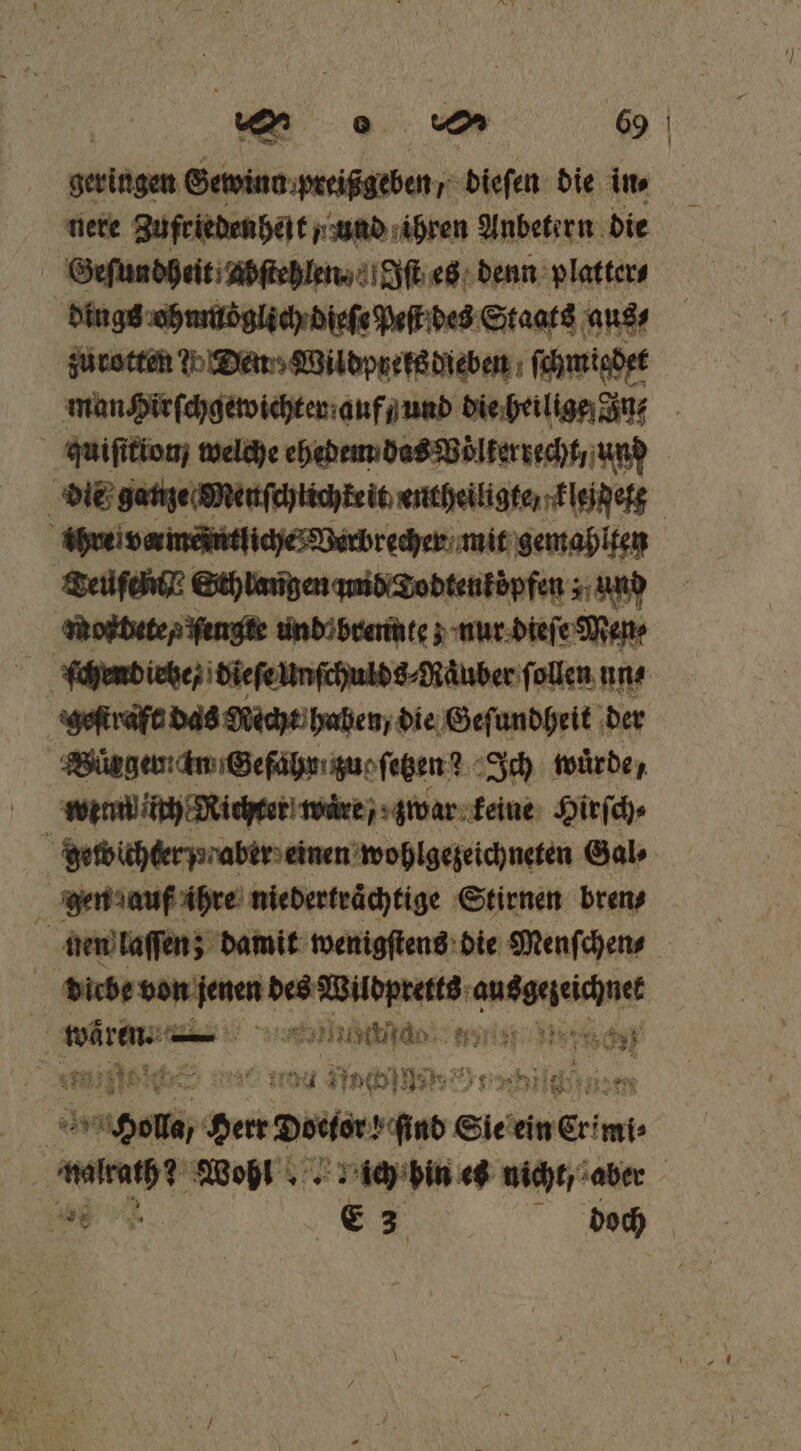 o 69
geringen Gewinn preißgeben, dieſen die in⸗
nere Zufriedenheit, und ihren Anbetern die
Geſundheit abſtehlen. Iſt es denn platter⸗
dings ohnmoͤglich dieſe Peſt des Staats aus⸗
zurotten? Den Wildpretsdieben ſchmiedet
man Hirſchgewichter auf, und die heilige In⸗
quiſition, welche ehedem das Voͤlkerrecht, und
die ganze Menſchlichkeit entheiligte, kleidete
ihre vermeintliche Verbrecher mit gemahlten
Teufeln, Schlangen und Todtenkoͤpfen; und
mordete, ſengte und brennte; nur dieſe Men⸗
ſchendiebe, dieſe Unſchulds⸗Raͤuber ſollen un⸗
geſtraft das Recht haben, die Geſundheit der
Buͤrger in Gefahr zu ſetzen? Ich wuͤrde,
wenn ich Richter waͤre, zwar keine Hirſch⸗
gewichter, aber einen wohlgezeichneten Gal⸗
gen auf ihre niedertraͤchtige Stirnen bren⸗
nen laſſen; damit wenigſtens die Menſchen⸗
diebe von jenen des Wildpretts ausgezeichnet
waͤren. —
Holla, Herr Doctor! ſind Sie ein Crimi⸗
nalrath? Wohl . . ich bin es nicht, aber
E 3 doch